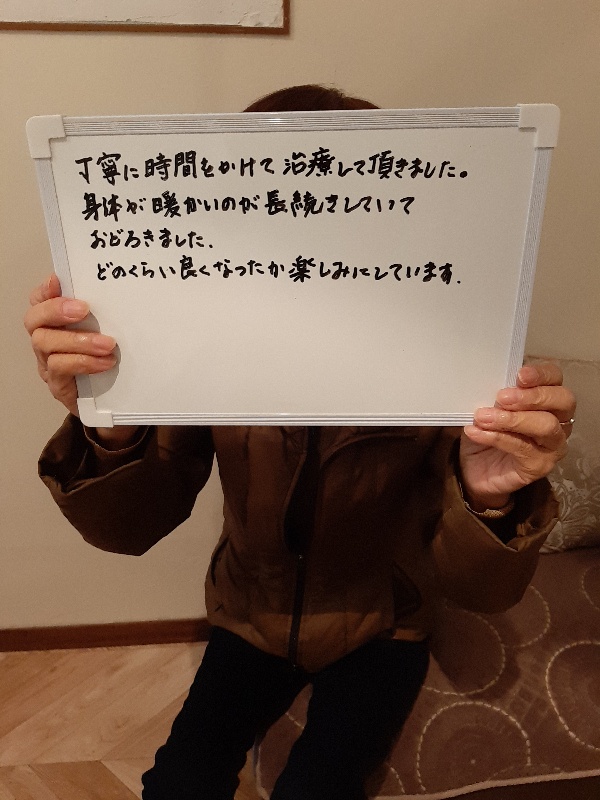 丁寧に時間をかけて治療して頂きました。
身体が暖かいのが長続きしていて
おどろきました.
どのくらい良くなったか楽しみにしています.